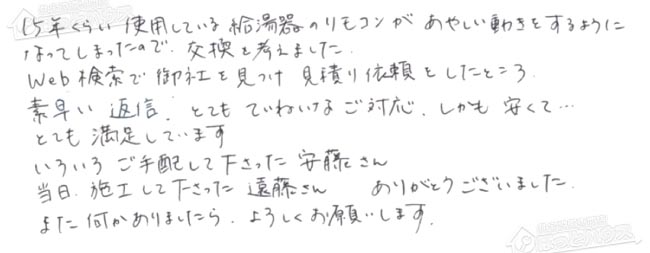 15年くらい使用している給湯器のリモコンがあやしい動きをするように
なってしまったので、交換を考えました.
Web検索で御社を見つけ見積り依頼をしたところ.
素早い返信、とてもていねいなご対応、しかも安くて…
とても満足しています
いろいろご手配して下さった安藤さん
当日、施工して下さった遠藤さん ありがとうございました.
また何かありましたら、よろしくお願いします.